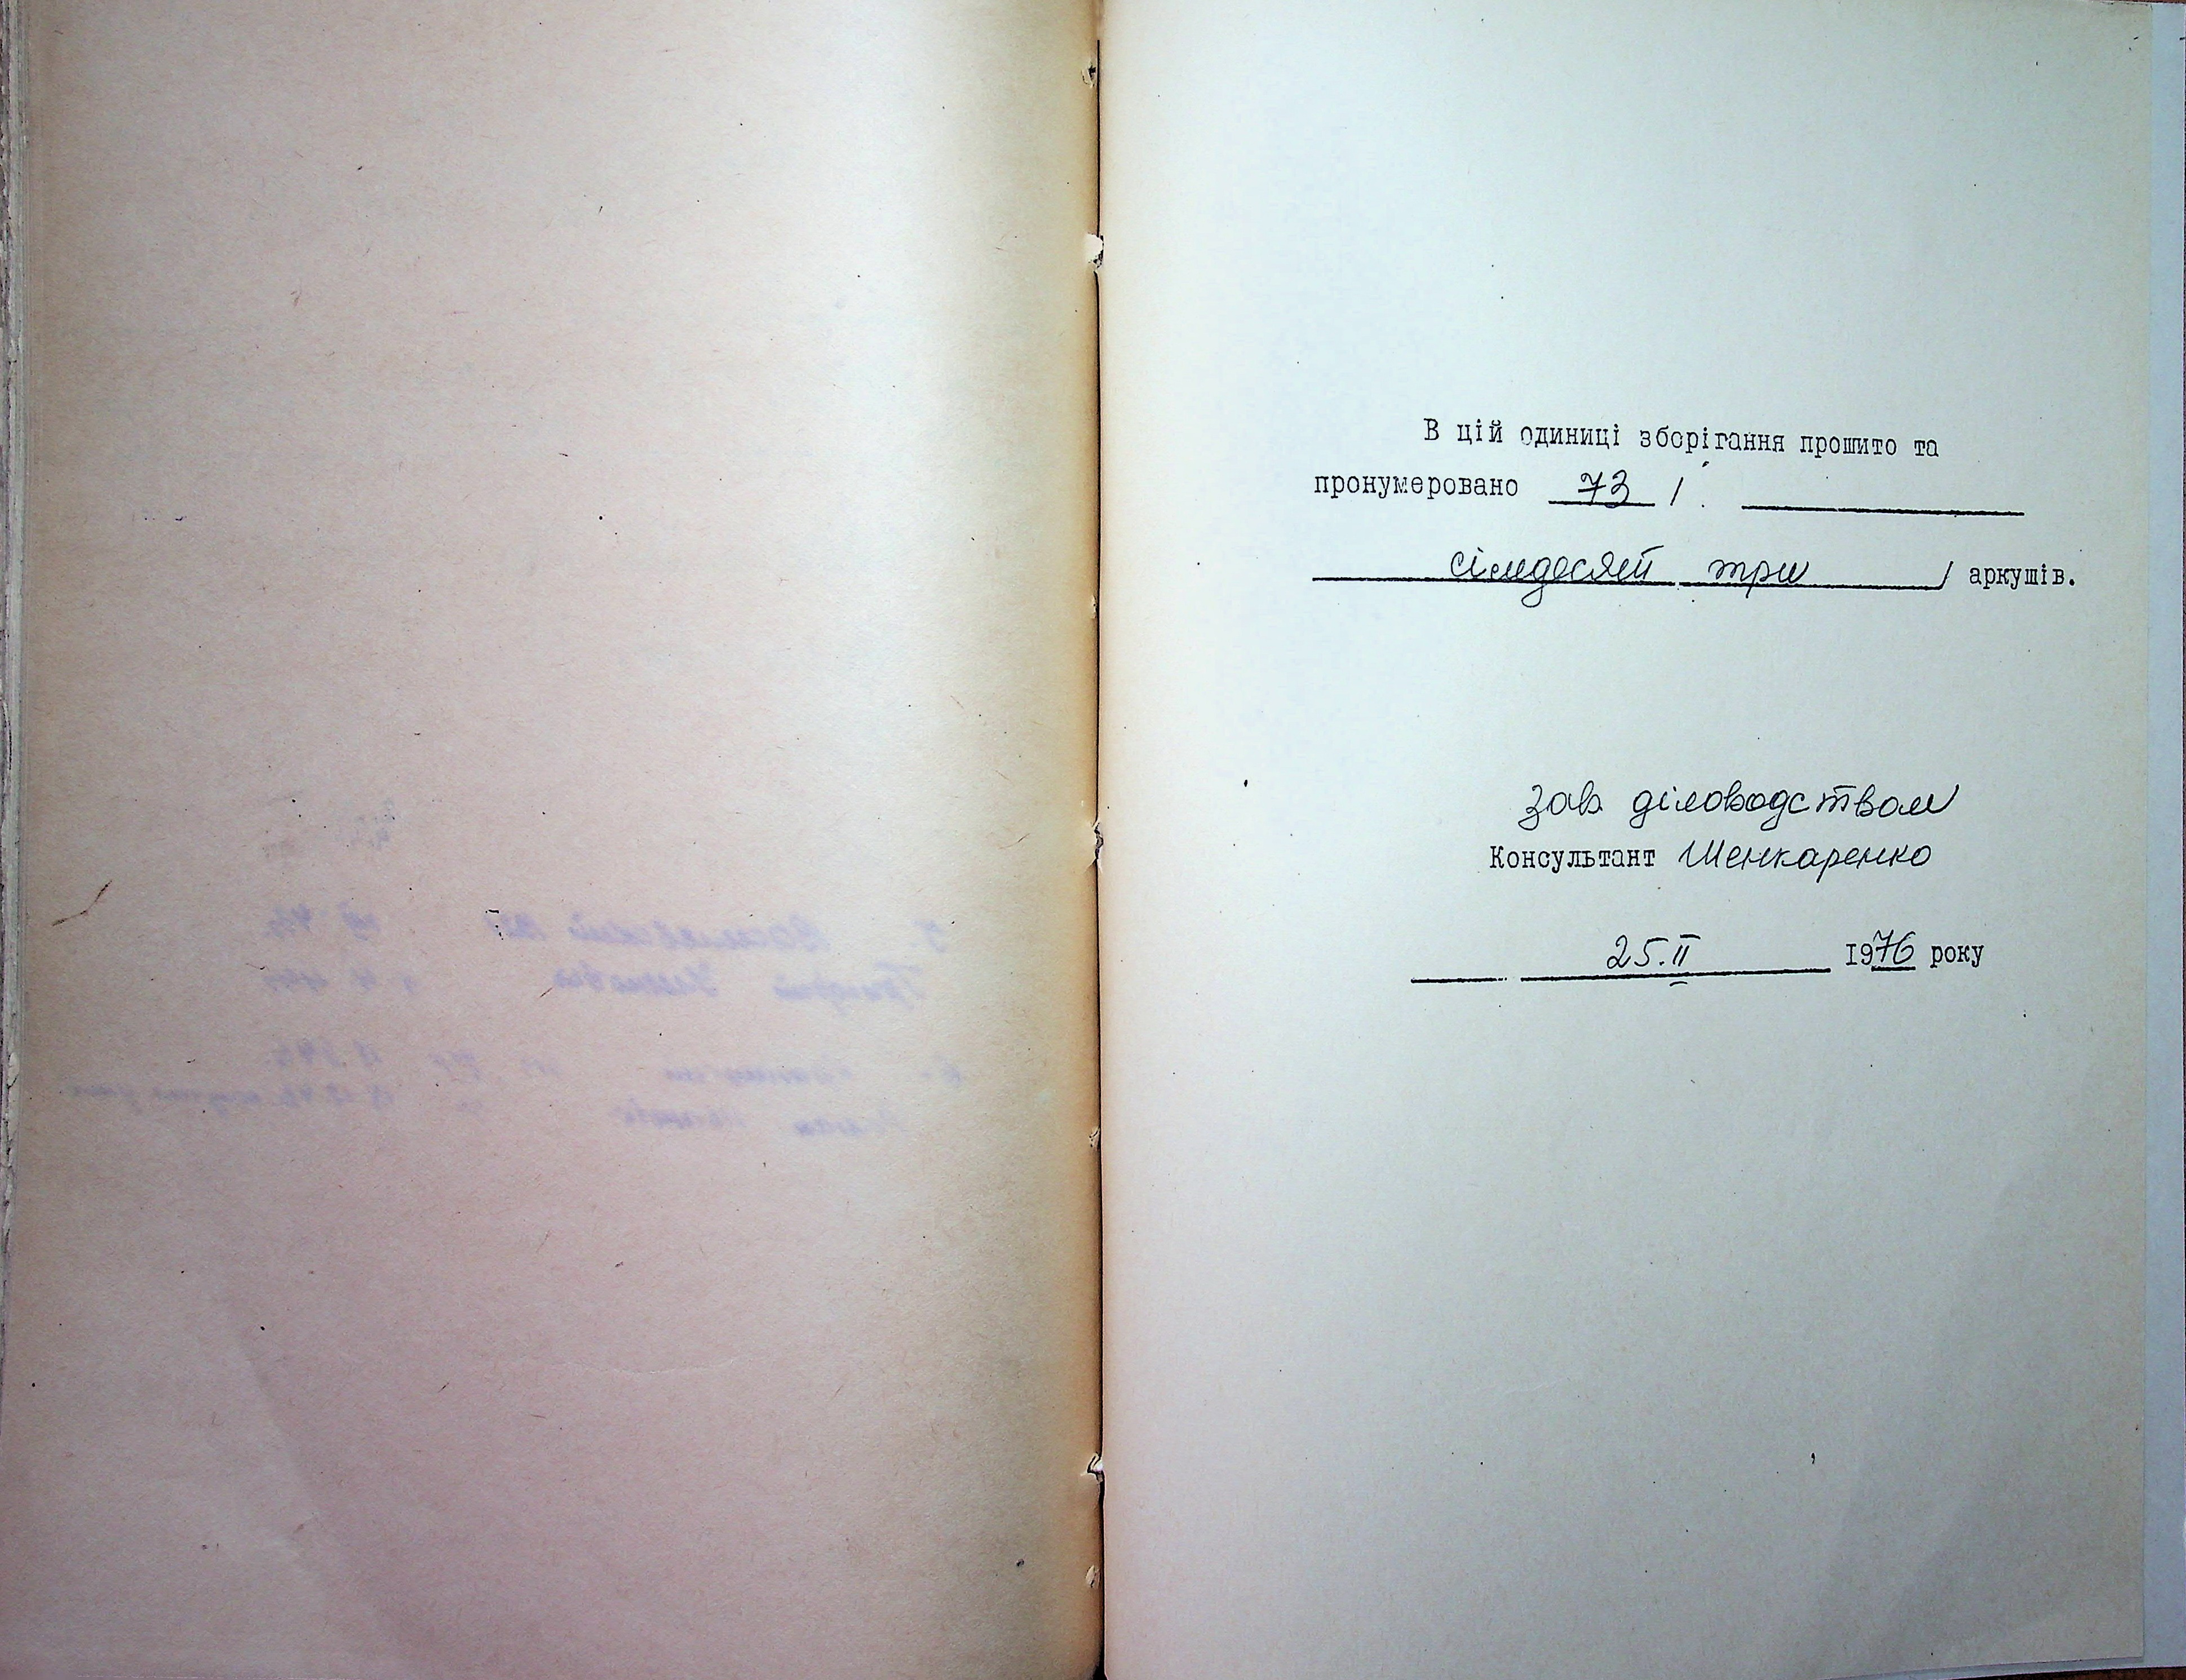 В цій одиниці зберігання прошито та
пронумеровано 73 /
сімдесят три / аркушів.
зав діловодством
Консультант Шенкаренко
25.II 1976 року